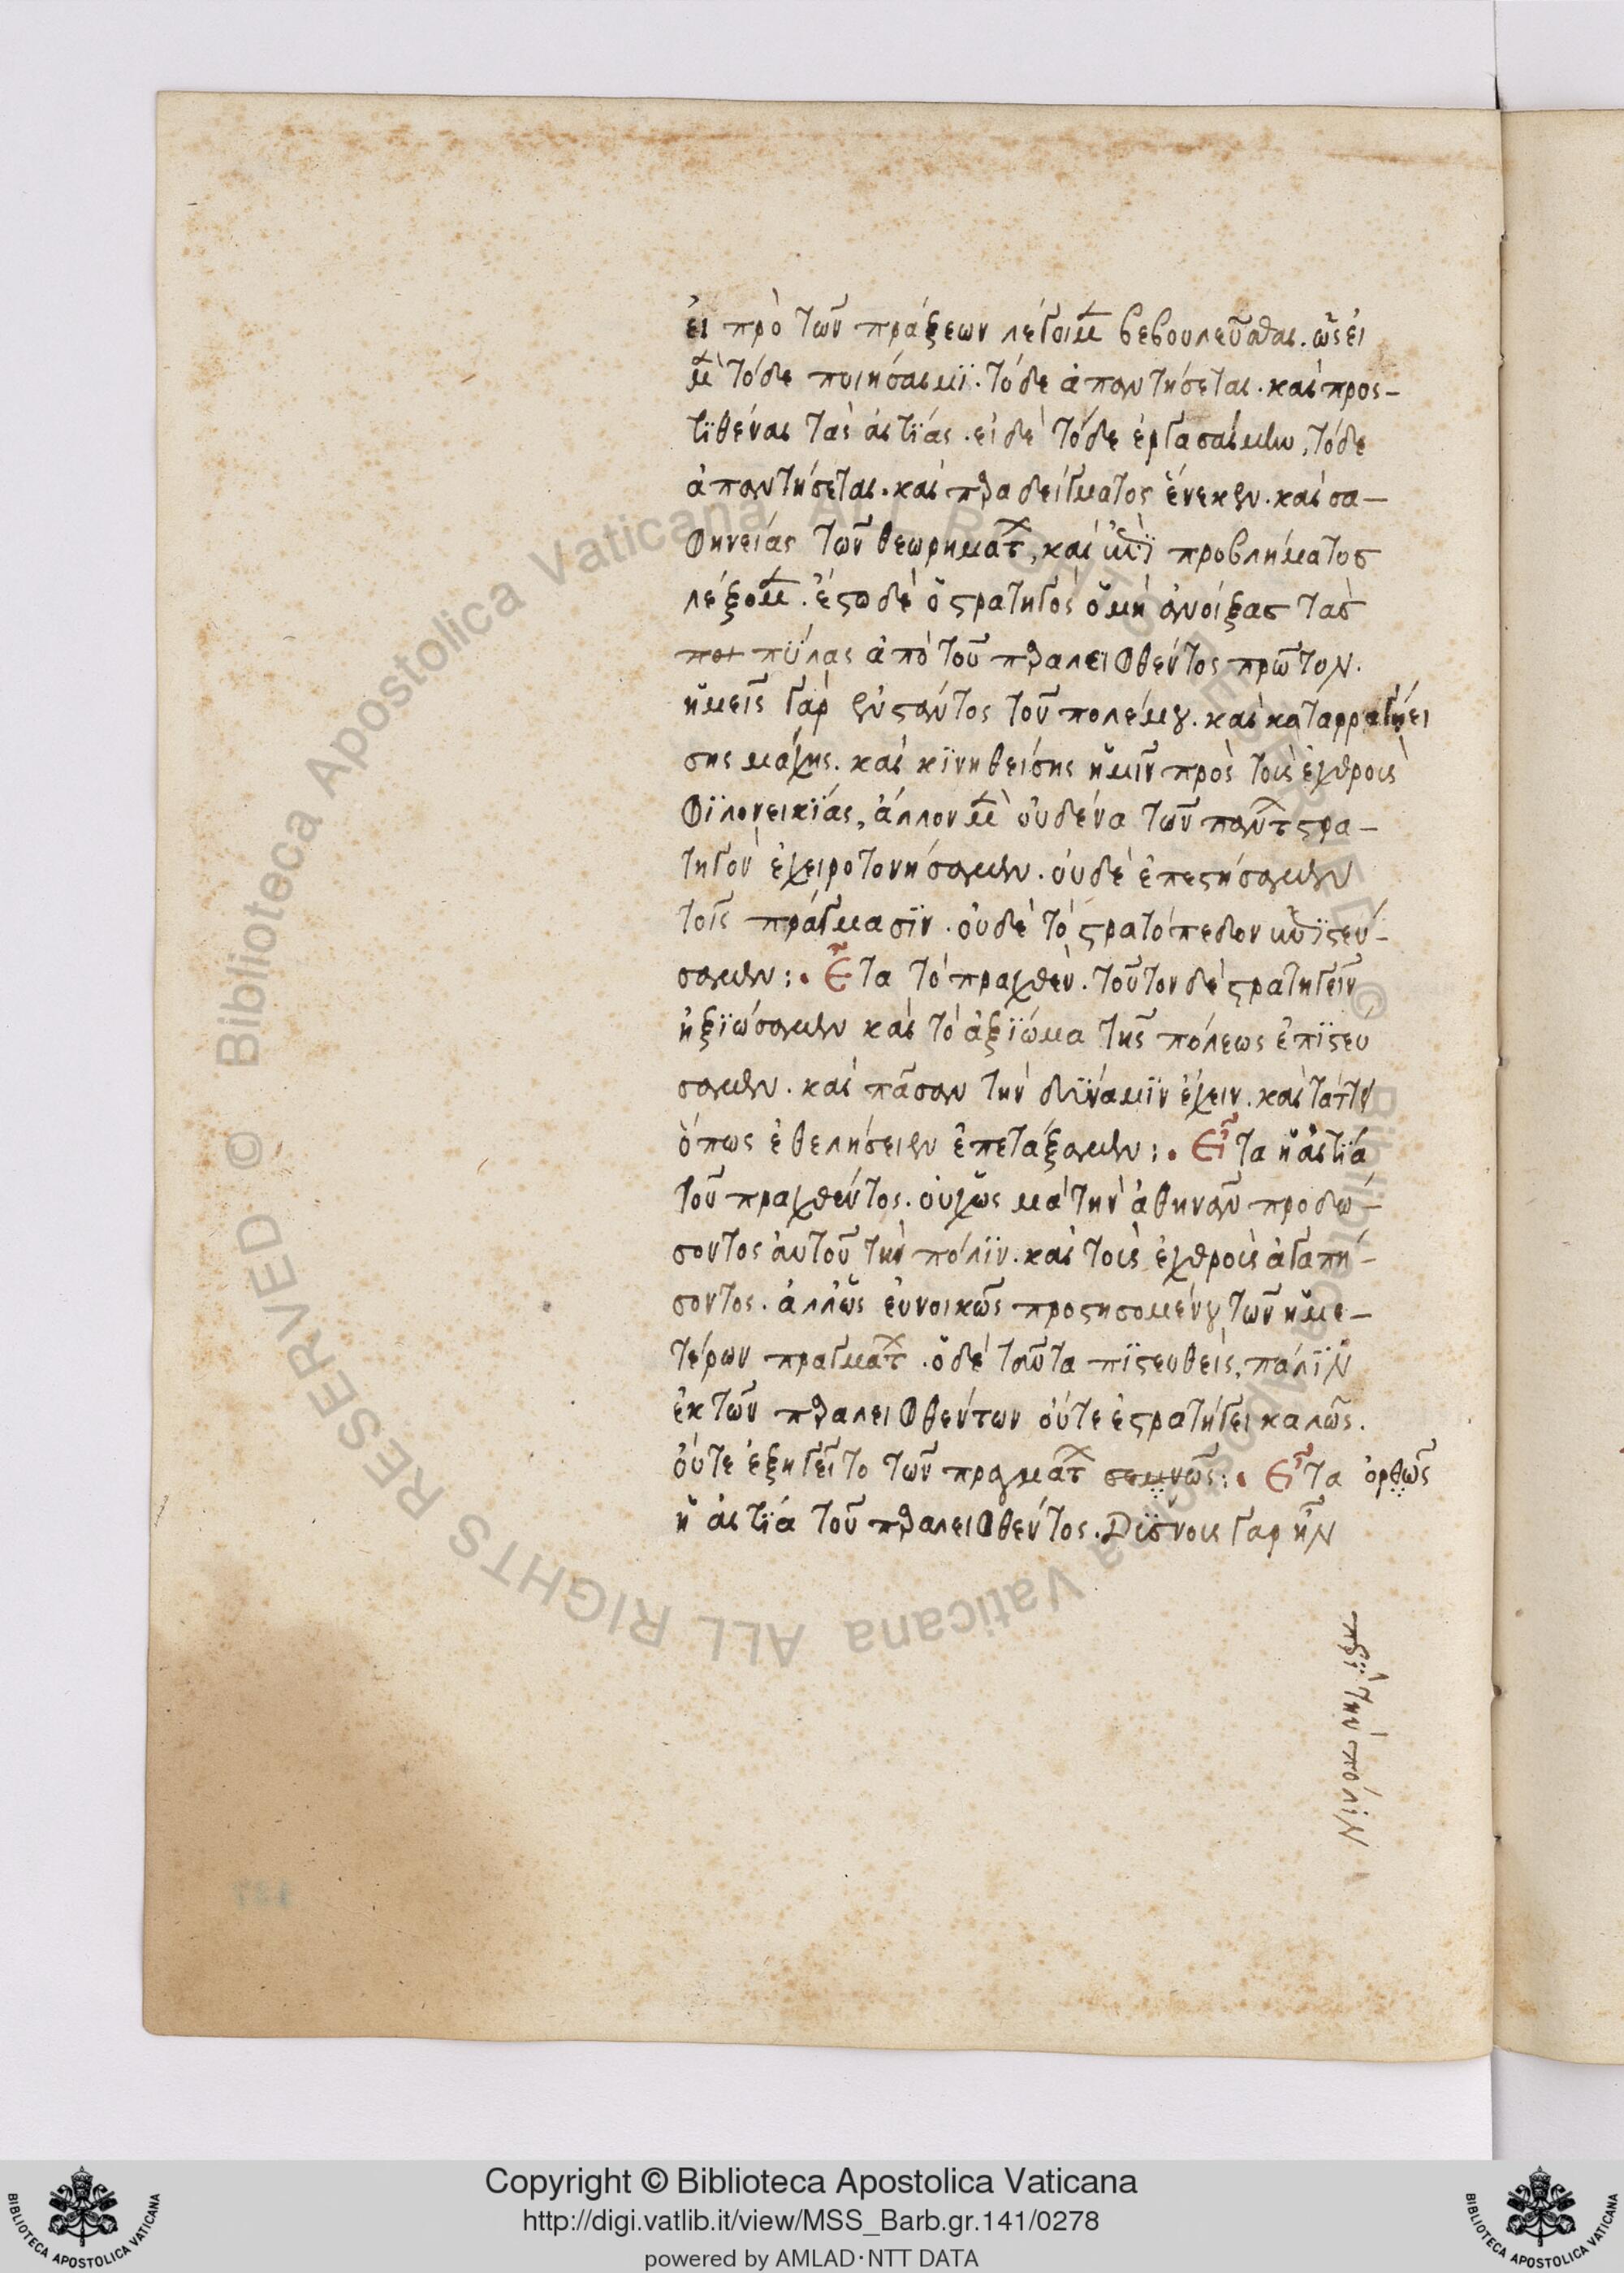 εἰ πρὸ τῶν πράξεων λέγοιμεν βεβουλεῦσθαι. ὡς εἰ
μὲν τόδε ποιήσαιμι. τόδε ἀπαντήσεται. καὶ προσ-
τιθέναι τὰς αἰτίας. εἰ δὲ τόδε ἐργασαίμην, τόδε
ἀπαντήσεται. καὶ παραδείγματος ἕνεκεν. καὶ σα-
φηνείας τῶν θεωρημάτων, καὶ προβλήματος
λέξομεν. ἔστω δὲ ὁ στρατηγὸς ὁ μὴ ἀνοίξας τὰς
πύλας ἀπὸ τοῦ παραλειφθέντος πρῶτον.
ἡμεῖς γὰρ ἐνστάντος τοῦ πολέμου. καὶ καταρραγεί
σης μάχης. καὶ κινηθείσης ἡμῖν πρὸς τοὺς ἐχθροὺς
φιλονεικίας, ἄλλον μὲν οὐδένα τῶν πάντων στρα-
τηγὸν ἐχειροτονήσαμεν. οὐδὲ ἐπεστήσαμεν
τοῖς πράγμασιν. οὐδὲ τὸ στρατόπεδον ἐπιστεύ-
σαμεν: Εἶτα τὸ πραχθέν. τοῦτον δὲ στρατηγεῖν
ἠξιώσαμεν καὶ τὸ ἀξίωμα τῆς πόλεως ἐπιστεύ
σαμεν. καὶ πᾶσαν τὴν δύναμιν ἔχειν. καὶ τάττειν
ὅπως ἐθελήσειεν ἐπετάξαμεν: Εἶτα ἡ αἰτία
τοῦ πραχθέντος. οὐχ ὡς μὰ τὴν ἀθηνᾶν προδώ-
σοντος αὐτοῦ τὴν πόλιν. καὶ τοὺς ἐχθροὺς ἀγαπή-
σοντος. ἀλλ' ὡς εὐνοικῶς προστησομένου τῶν ἡμε-
τέρων πραγμάτων. ὁ δὲ ταῦτα πιστευθεὶς, πάλιν
ἐκ τῶν παραλειφθέντων οὔτε ἐστρατήγει καλῶς.
οὔτε ἐξηγεῖτο τῶν πραγμάτων σεμνῶς: Εἶτα ὀρθῶς
ἡ αἰτία τοῦ παραλειφθέντος. Δύσνοις γὰρ ἦν
περὶ τὴν πόλιν
© Biblioteca Apostolica Vaticana ALL RIGHTS RESERVED © Biblioteca Apostolica Vaticana ALL RIGHTS RESERVED
Copyright © Biblioteca Apostolica Vaticana
http://digi.vatlib.it/view/MSS_Barb.gr.141/0278
powered by AMLAD·NTT DATA
BIBLIOTECA APOSTOLICA VATICANA
BIBLIOTECA APOSTOLICA VATICANA